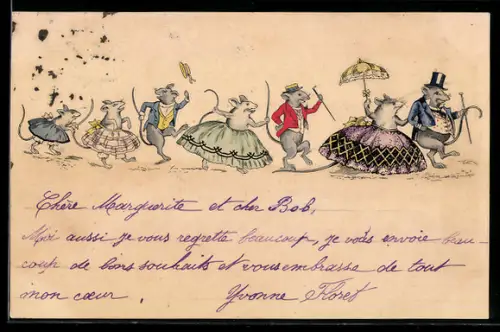 Chère Marguerite et cher Bob,
Moi aussi je vous regrette beaucoup, je vous envoie beau-
coup de bons souhaits et vous embrasse de tout
mon cœur. Yvonne Floret